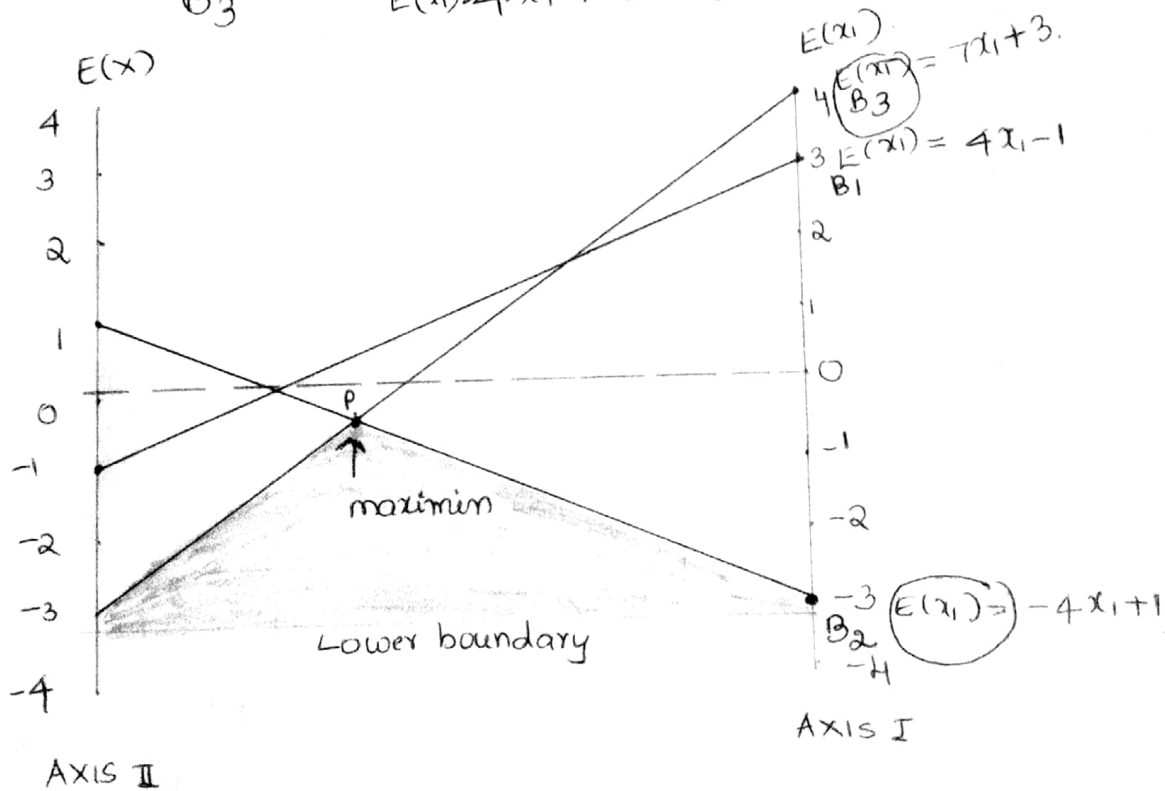 B3
E(X)
4
3
2
1
0
-1
-2
-3
-4
AXIS II
P
maximin
Lower boundary
E(x₁)
4 E(x₁) = 7x₁+3.
B3
3 E(x₁) = 4x₁-1
B1
2
1
0
-1
-2
-3 E(x₁) = -4x₁+1
B2
-4
AXIS I